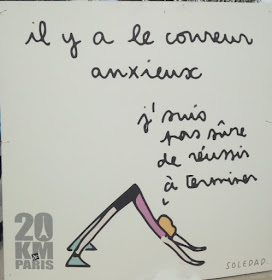 il y a le coureur
anxieux
j'suis
pas sûre
de réussir
à terminer
20
KM
PARIS
SOLEDAD